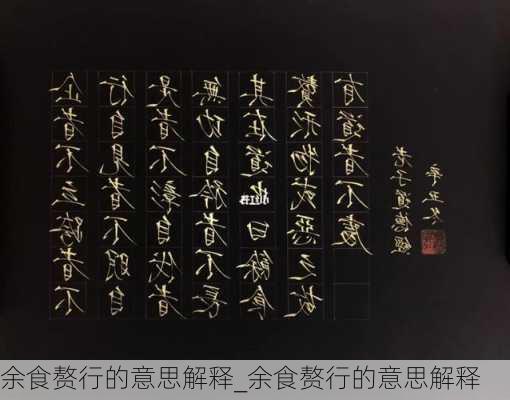 企者不立跨者不
行自見者不明自
是者不彰自伐者
無功自矜者不長
其在道也曰餘食
贅形物或惡之故
有道者不處
老子道德經
辛丑冬
小红书
余食赘行的意思解释_余食赘行的意思解释